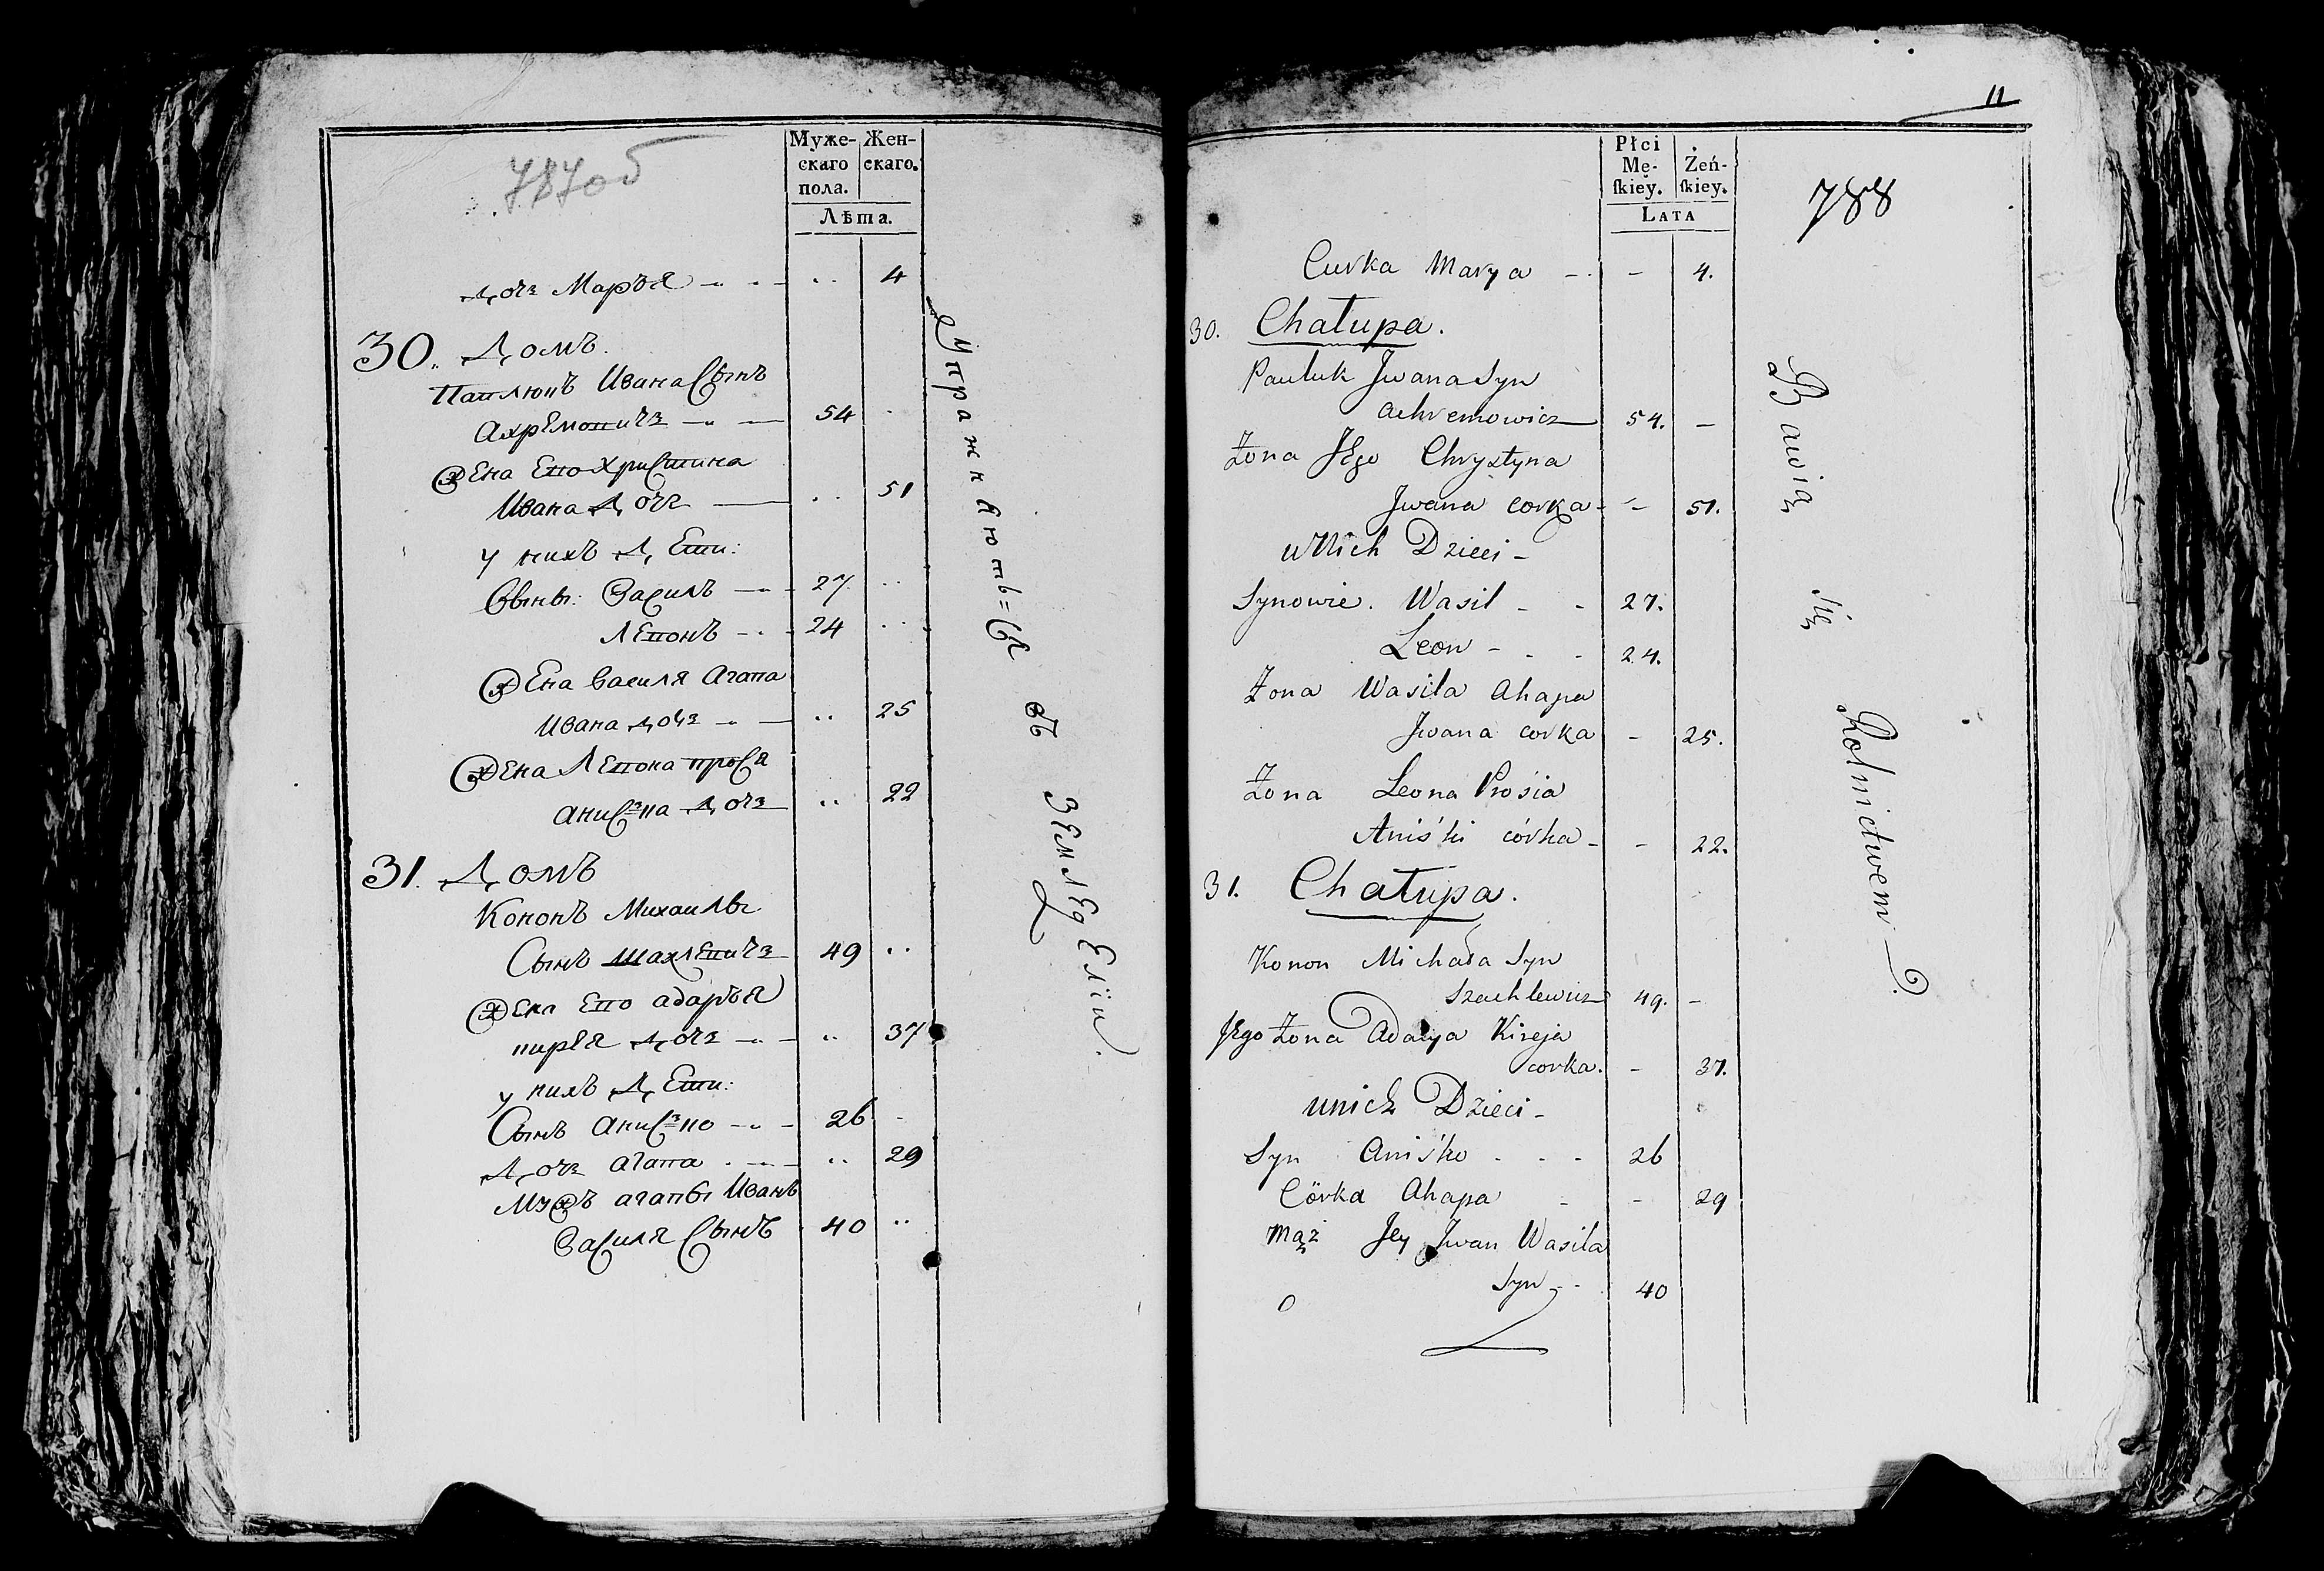 787об
Муже- Жен-
скаго скаго.
пола.
Лѣта.
дочь Марья 4
30. Домъ.
Павлюкъ Ивана Сынъ
Ахремовичъ 54
Жена Его Христина
Ивана дочь 51
у нихъ Дети:
Сыны: Василъ 27
Левонъ 24
Жена Василя Агапа
Ивана дочь 25
Жена Левона прося
дочь 22
31. Домъ
Кононъ Михаилы
Сынъ Шахлевичъ 49
Жена Его адарья
кирея дочь 37
у нихъ Дети:
Сынъ 26
Дочь агапа 29
Мужъ агапы Иванъ
Василя Сынъ 40
Упражняють=Ся въ Земледелiи.
11
788
Płci
Mę- Żeń-
skiey. skiey.
LATA
Curka Marya - - 4.
30. Chałupa.
Pauluk Jwana Syn
Achremowicz 54. -
Żona Jego Chrystyna
Jwana corka - - 51.
u Nich Dzieci -
Synowie. Wasil - - 27.
Leon - - - 24.
Żona Wasila Ahapa
Jwana corka - 25.
Żona Leona Prośia
Aniśki córka - - 22.
31. Chałupa.
Konon Michała Syn
Szachlewicz 49. -
Jego Żona Adarya Kireja
corka. - 37.
u nich Dzieci -
Syn Aniśko - - - 26
Córka Ahapa - - 29
Mąż Jey Jwan Wasila
Syn - - 40
Bawią się Rolnictwem